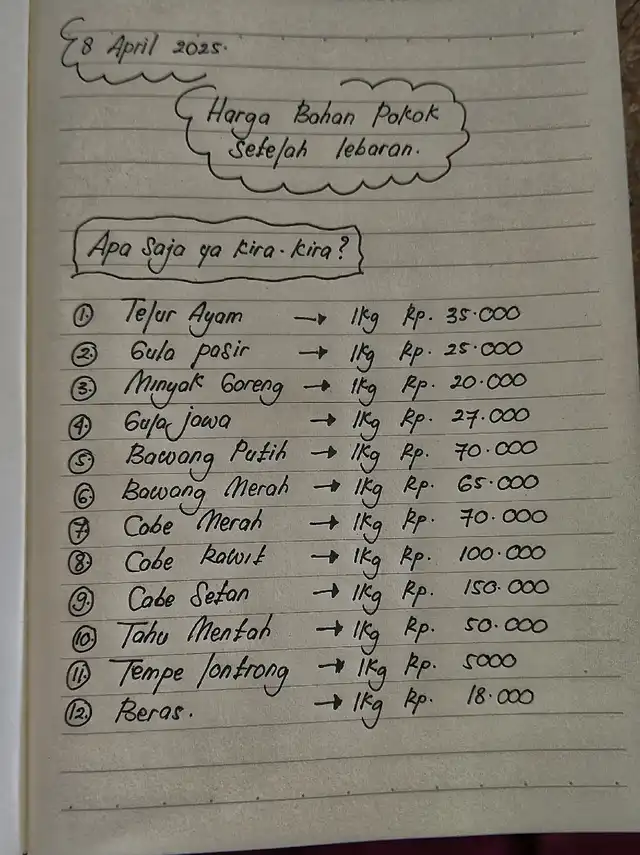 8 April 2025.
Harga Bahan Pokok
Setelah lebaran.
Apa saja ya kira-kira?
1. Telur Ayam → 1Kg Rp. 35.000
2. Gula pasir → 1Kg Rp. 25.000
3. Minyak Goreng → 1Kg Rp. 20.000
4. Gula jawa → 1Kg Rp. 27.000
5. Bawang Putih → 1Kg Rp. 70.000
6. Bawang Merah → 1Kg Rp. 65.000
7. Cabe Merah → 1Kg Rp. 70.000
8. Cabe Rawit → 1Kg Rp. 100.000
9. Cabe Setan → 1Kg Rp. 150.000
10. Tahu Mentah → 1Kg Rp. 50.000
11. Tempe lontrong → 1Kg Rp. 5000
12. Beras. → 1Kg Rp. 18.000